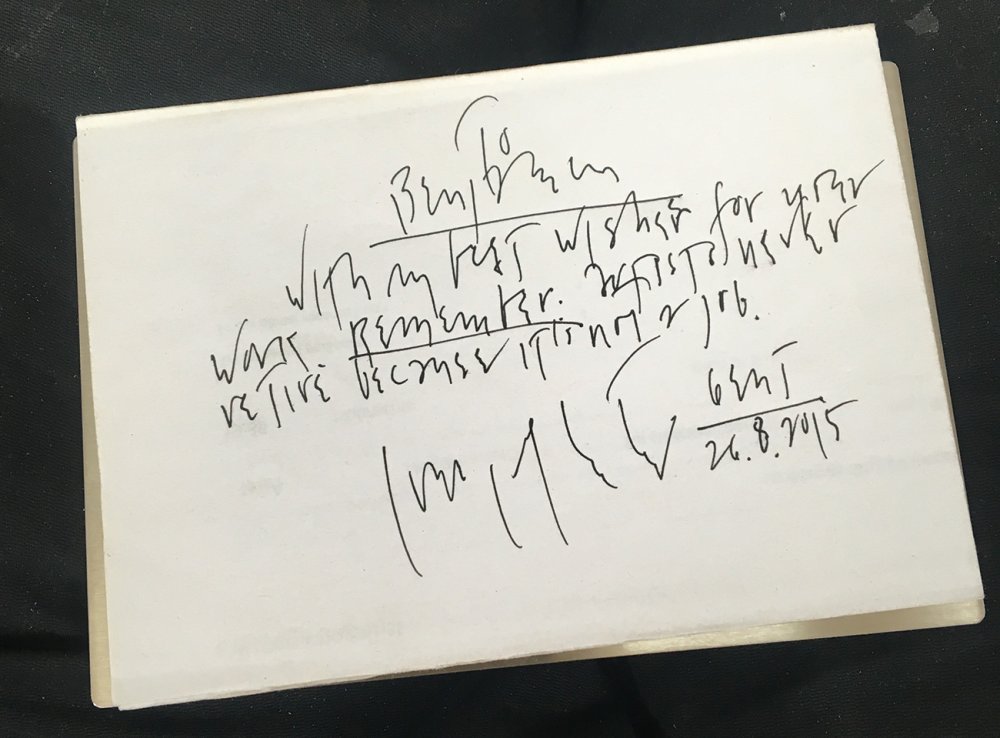 To
Benjamin
with my best wishes for your
work. Remember: artists never
retire because it is not a job.
GENT
26.8.2015